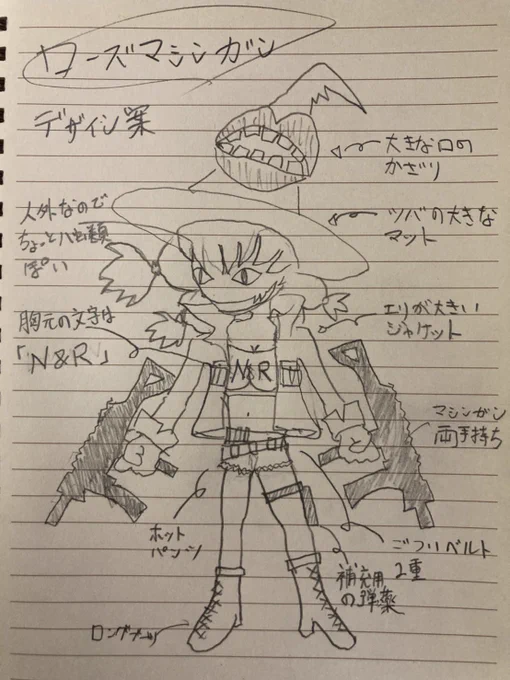 ローズマシンガン
デザイン案
大きな口の
かざり
ツバの大きな
マット
人外なので
ちょっとハ虫類
ぽい
エリが大きい
ジャケット
胸元の文字は
「N&R」
N&R
マシンガン
両手持ち
ホット
パンツ
ごついベルト
2重
補充用
の弾薬
ロングブーツ